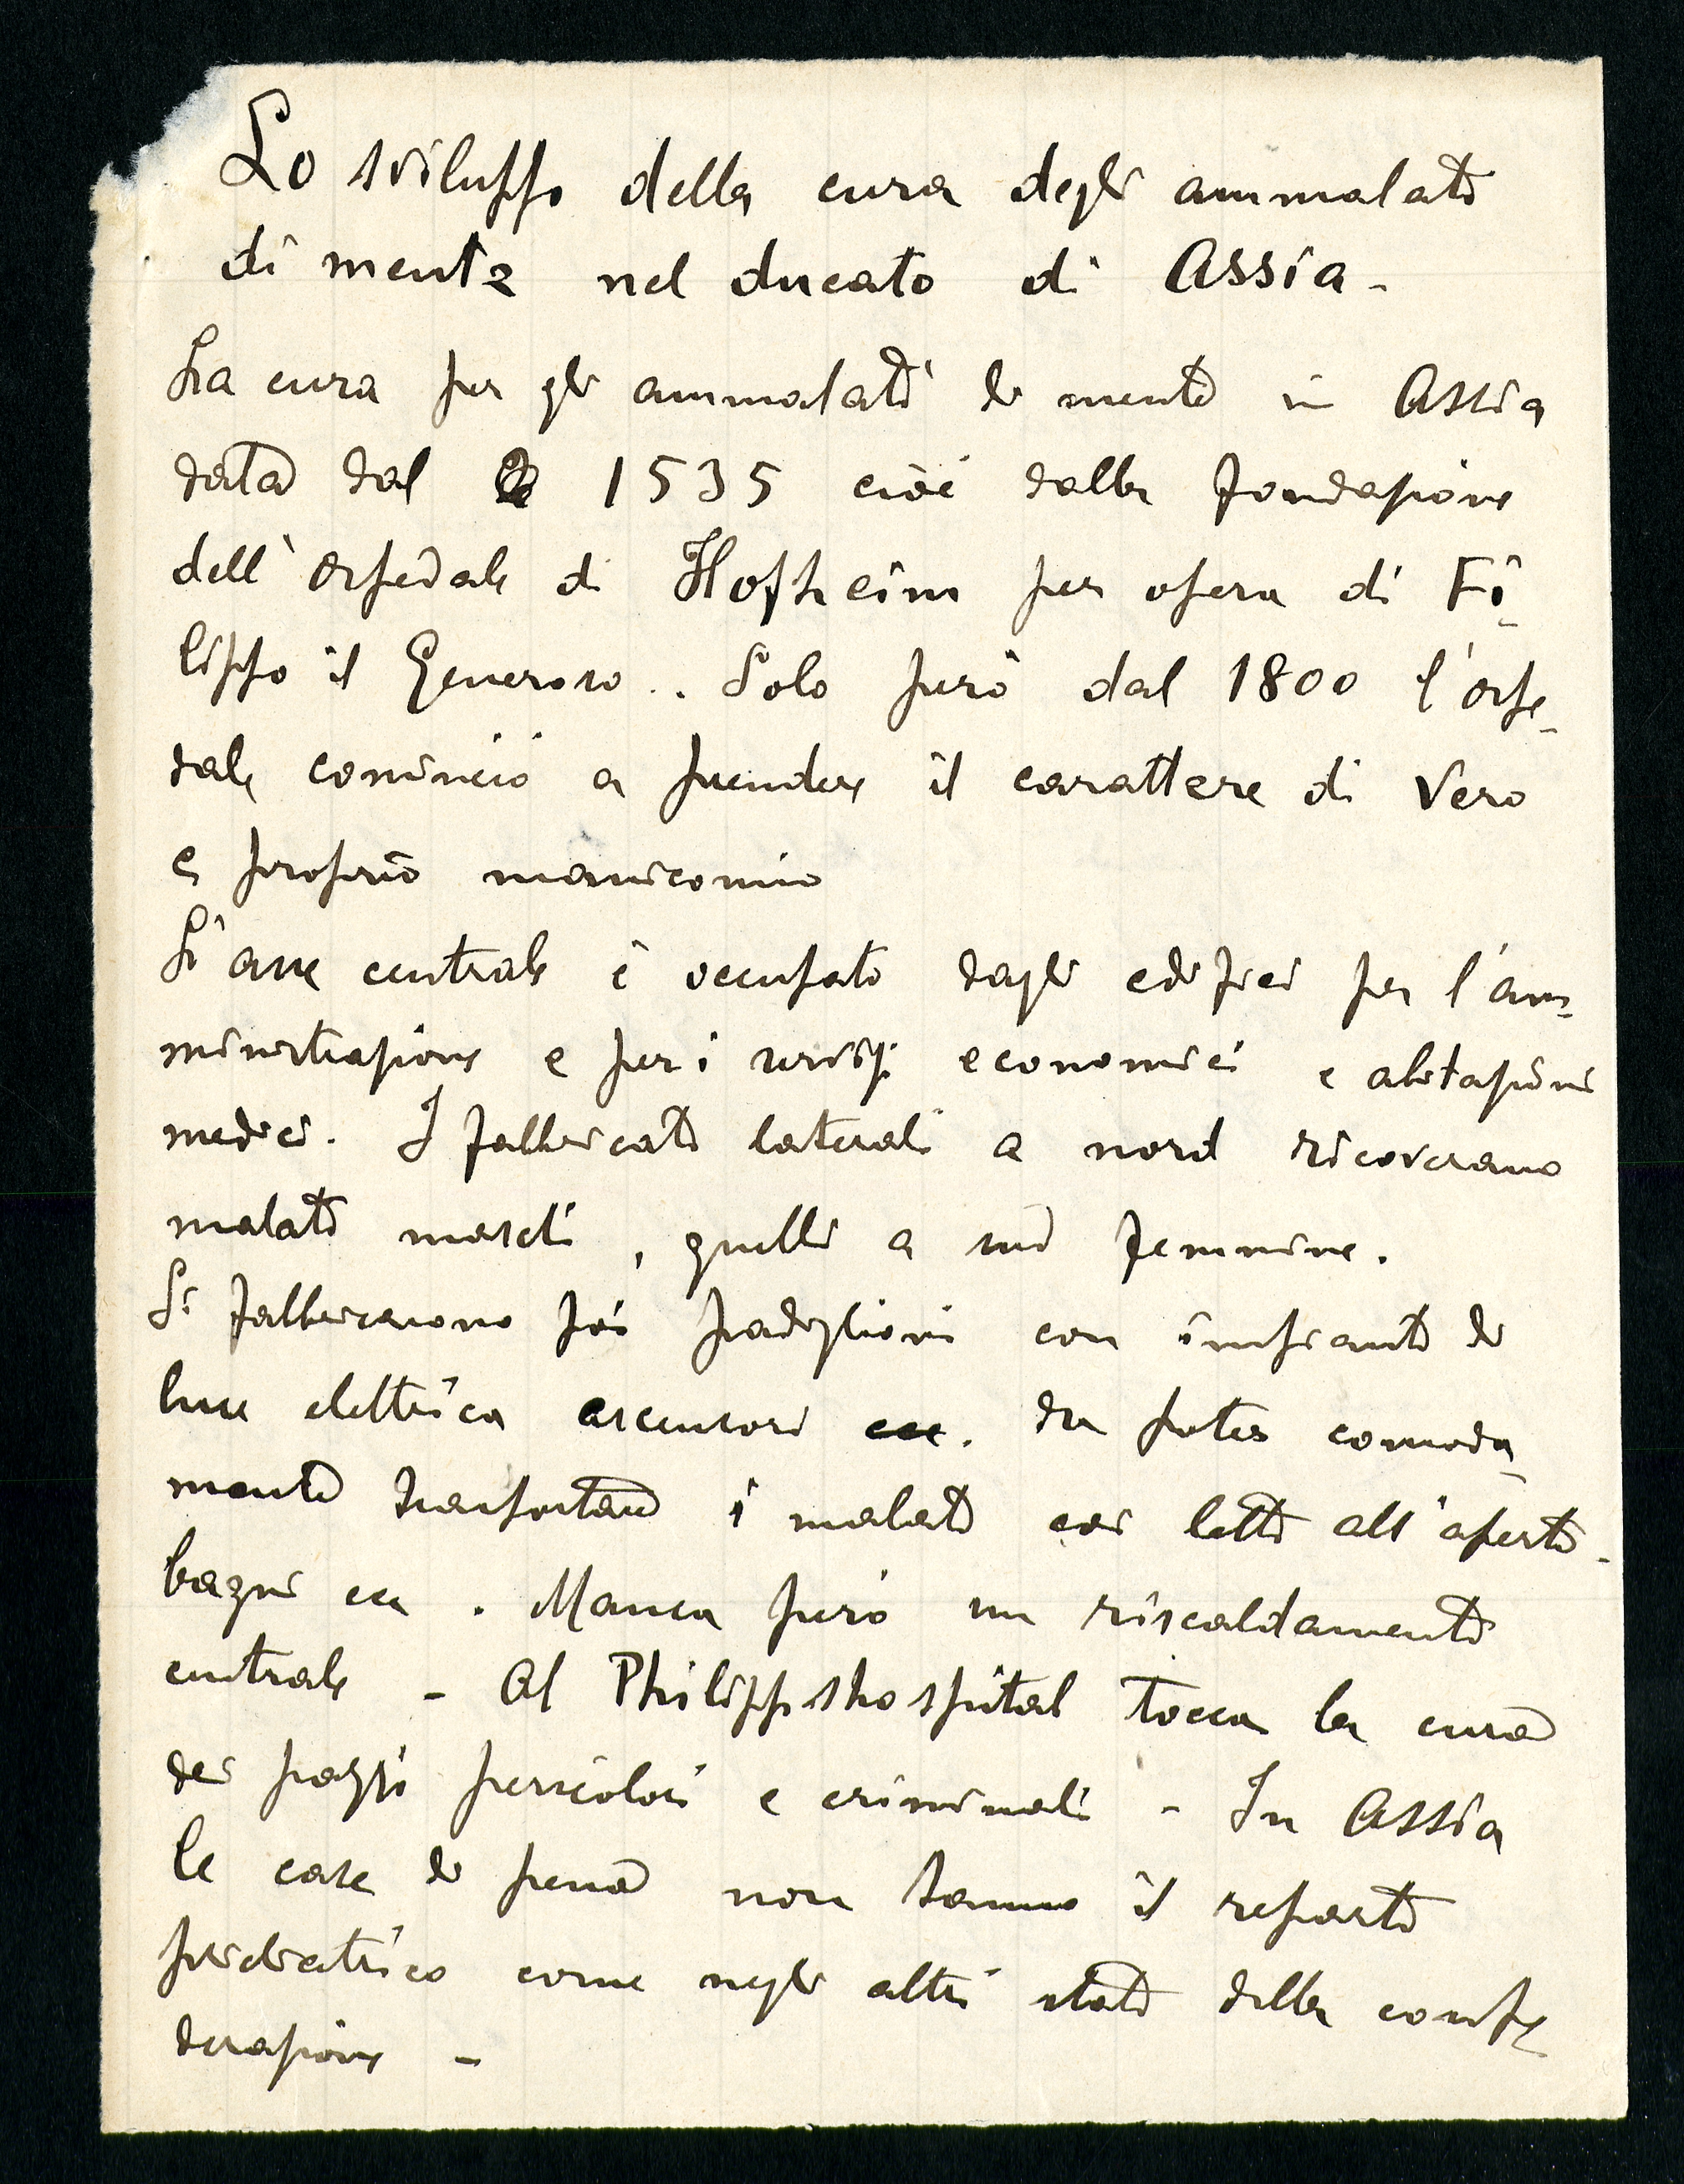 Lo sviluppo della cura degli ammalati
di mente nel ducato di Assia -
La cura per gli ammalati di mente in Assia
data dal 1535 cioè dalla fondazione
dell'ospedale di Hofheim per opera di Fi-
lippo il Generoso. Solo però dal 1800 l'ospe-
dale cominciò a prendere il carattere di vero
e proprio manicomio
L'asse centrale è occupato dagli edifici per l'am-
ministrazione e per i servizi economici e abitazioni
medici. I fabbricati laterali a nord ricoverano
malati maschi, quelli a sud femmine.
Si fabbricarono poi padiglioni con impianti di
luce elettrica ascensori ecc. da poter comoda-
mente trasportare i malati coi letti all'aperto -
bagni ecc. Manca però un riscaldamento
centrale - Al Philippshospital tocca la cura
dei pazzi pericolosi e criminali - In Assia
le case di pena non hanno il reparto
psichiatrico come negli altri stati della confe-
derazione -